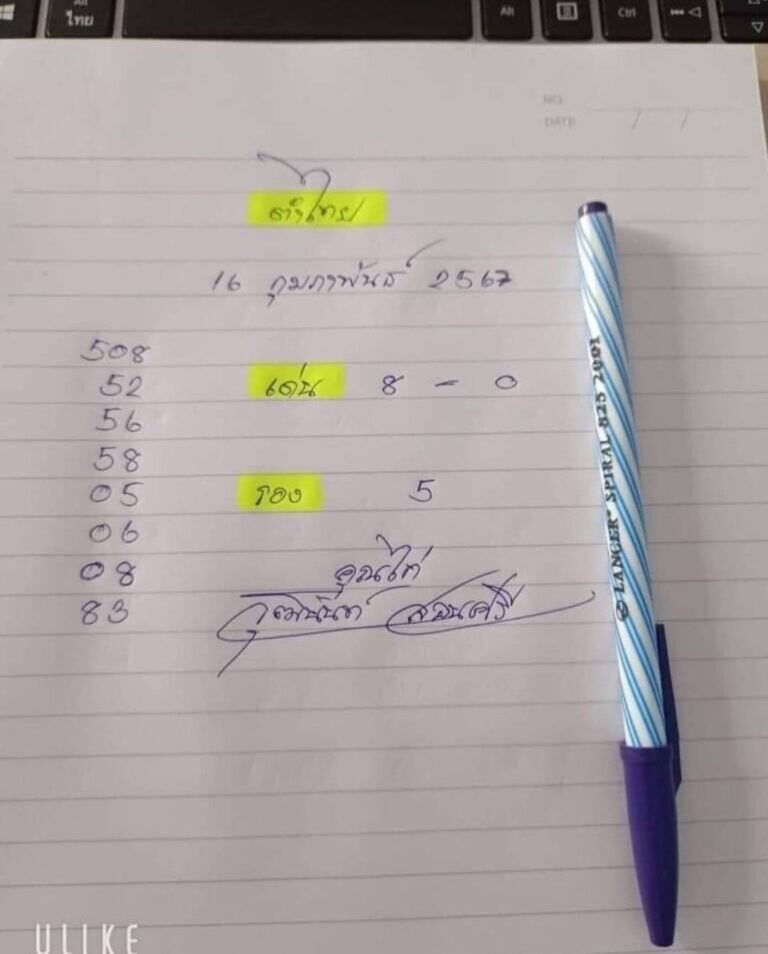 Alt
ไทย
Alt
Ctrl
NO.
DATE / /
16 กุมภาพันธ์ 2567
508
52 เด่น 8 - 0
56
58
05 รอง 5
06
08
83
LANCER SPIRAL 825 2001
ULIKE